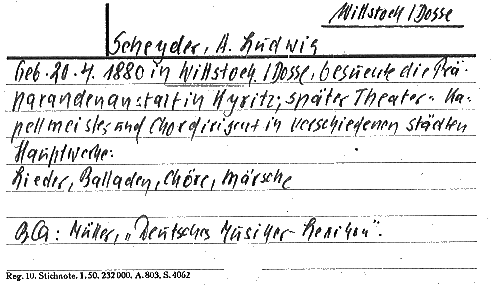 Wittstock/Dosse
Scheyder, A. Ludwig
Geb. 20.4.1880 in Wittstock/Dosse, besuchte die Prä-
parandenanstalt in Kyritz, später Theater-Ka-
pellmeister und Chordirigent in verschiedenen Städten
Hauptwerke:
Lieder, Balladen, Chöre, Märsche
BQ: Müller, „Deutsches Musiker-Lexikon".
Reg. 10. Stichnote. 1. 50. 232 000. A. 803, S. 4062